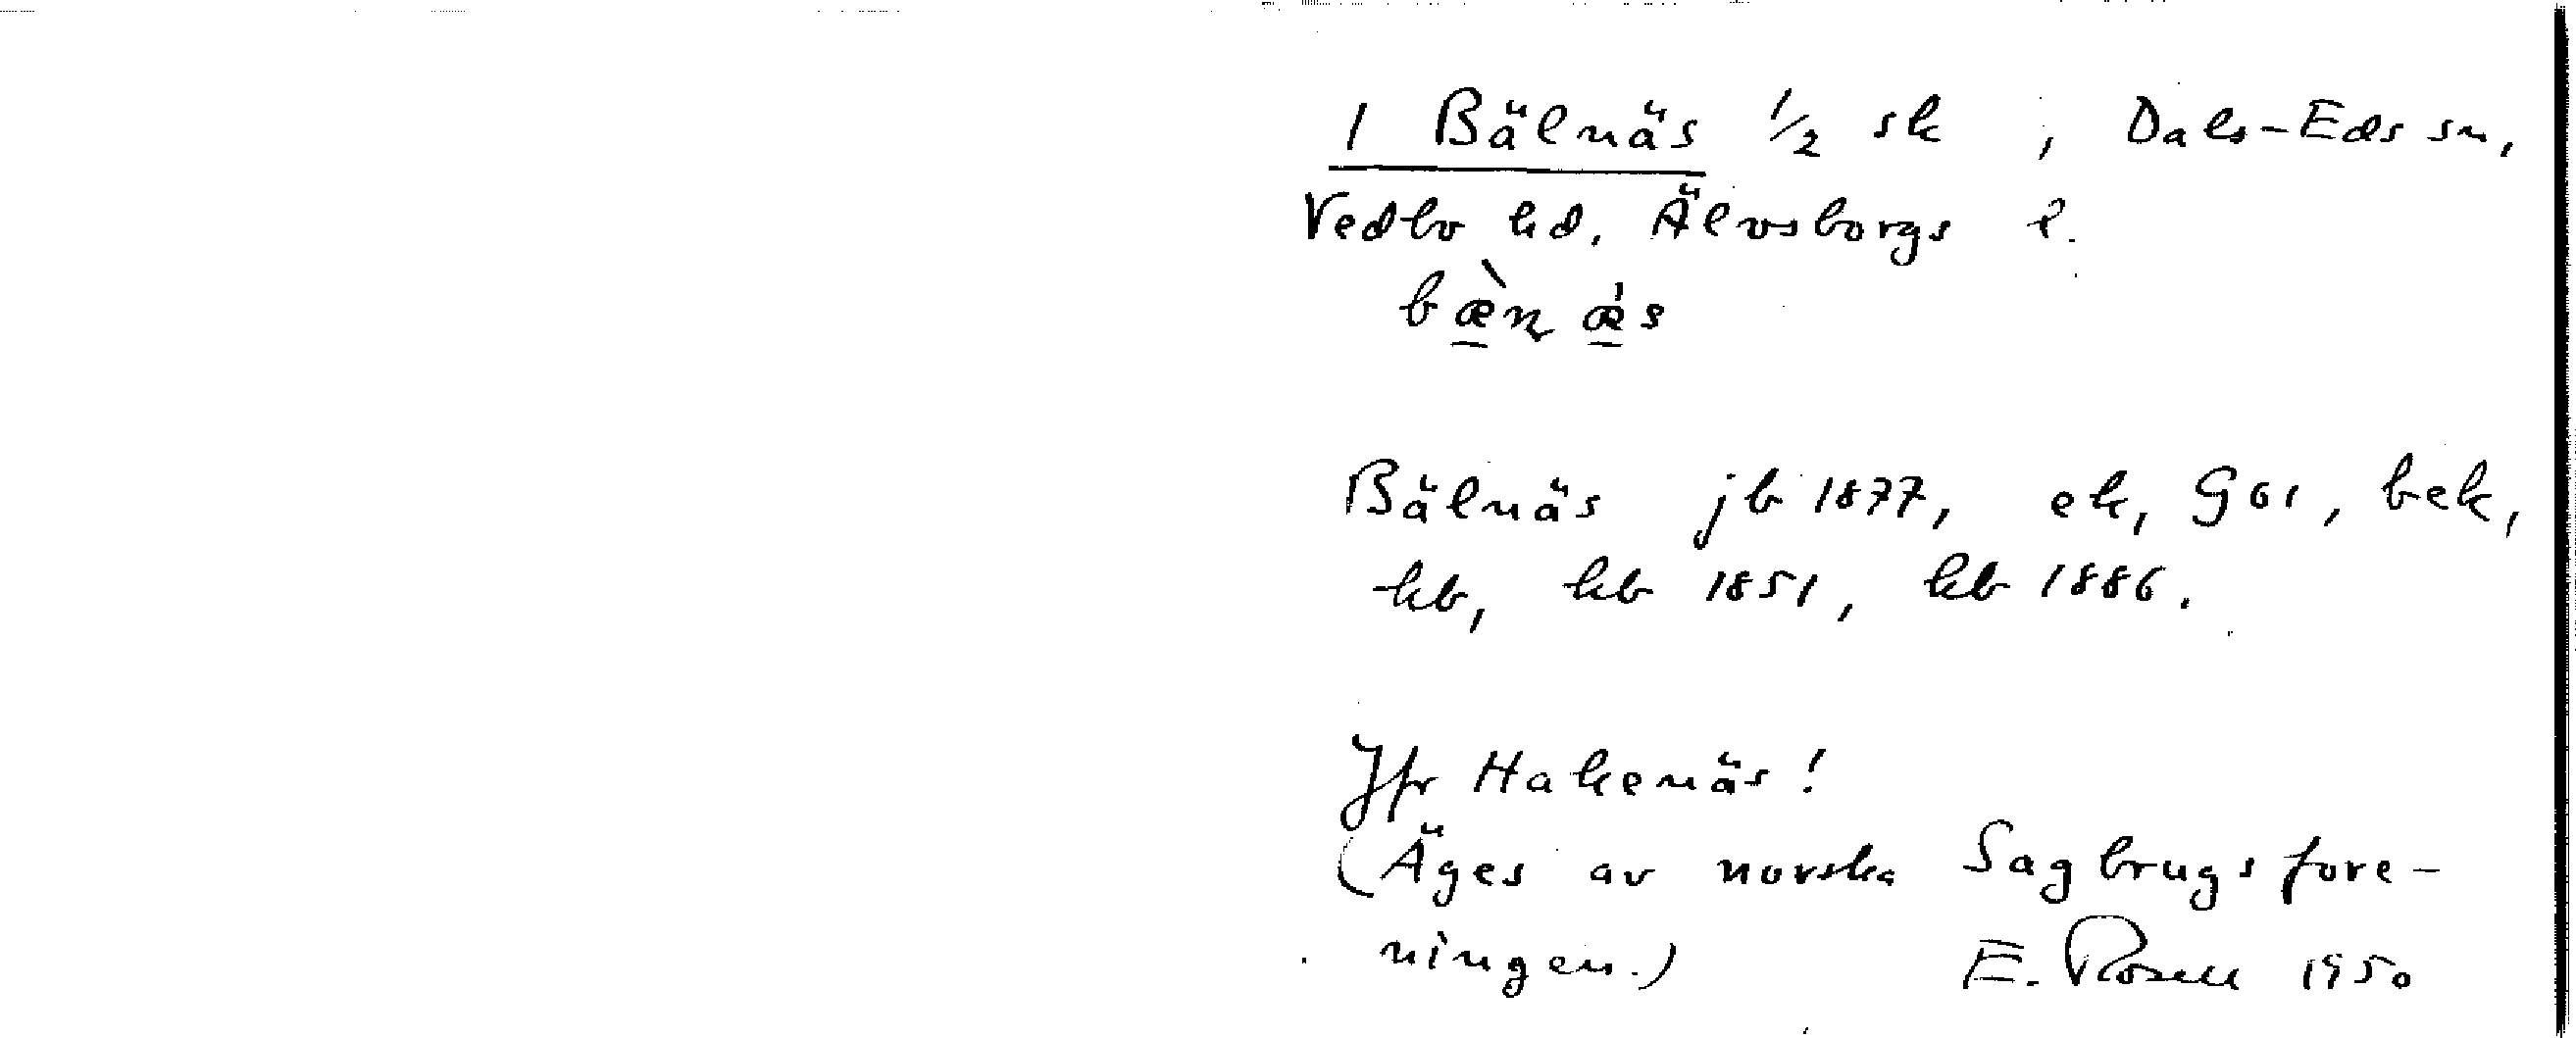 1 Bälnäs 1/2 sk , Dals-Eds sn,
Vedbo hd. Älvsborgs l.
bæ̀næ̀s
Bälnäs jb 1877, ek, G61, bek,
kb, kb 1851, kb 1886.
Jfr Hakenäs!
(Äges av norska Sagbrugsfore-
ningen.) E. Rosell 1950